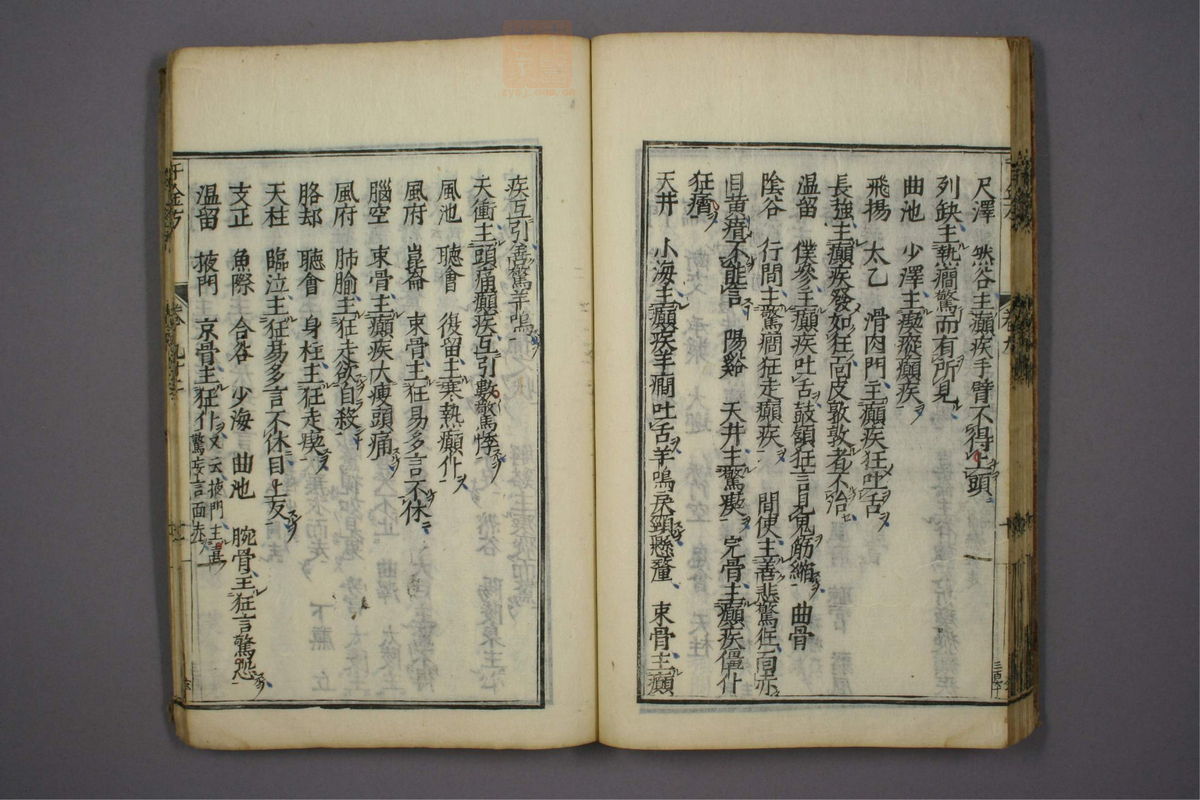 尺澤　然谷主癲疾手臂不得上頭
列缺主熱癇驚而有所見
曲池　少澤主瘈瘲癲疾
飛揚　太乙　滑肉門主癲疾狂吐舌
長強主癲疾發如狂面皮敦敦者不治
溫留　僕參主癲疾吐舌鼓頷狂言見鬼筋縮　曲骨
陰谷　行間主驚癇狂走癲疾　間使主善悲驚狂面赤
目黃瘖不能言　陽谿　天井主驚瘈　完骨主癲疾僵仆
狂瘧
天井　小海主癲疾羊癇吐舌羊鳴戾頸懸釐　束骨主癲
疾互引善驚羊鳴
天衝主頭痛癲疾互引數驚悸
風池　聽會　復留主寒熱癲仆
風府　崑崙　束骨主狂易多言不休
腦空　束骨主癲疾大瘦頭痛
風府　肺腧主狂走欲自殺
胳却　聽會　身柱主狂走瘈
天柱　臨泣主狂易多言不休目上反
支正　魚際　合谷　少海　曲池　腕骨主狂言驚恐
溫留　掖門　京骨主狂仆又云掖門主喜驚妄言面赤
千金方
卷